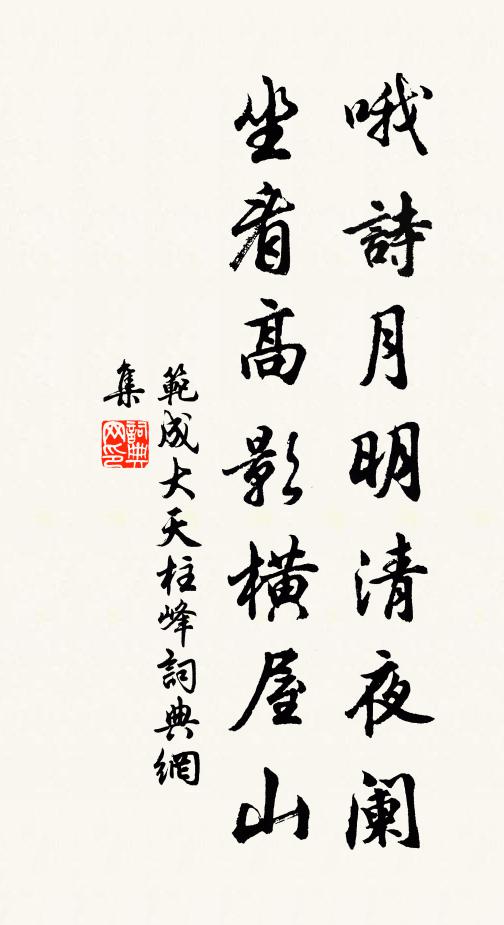 哦詩月明清夜阑
坐看高影橫屋山
範成大天柱峰詞典網
集
詞典
网印